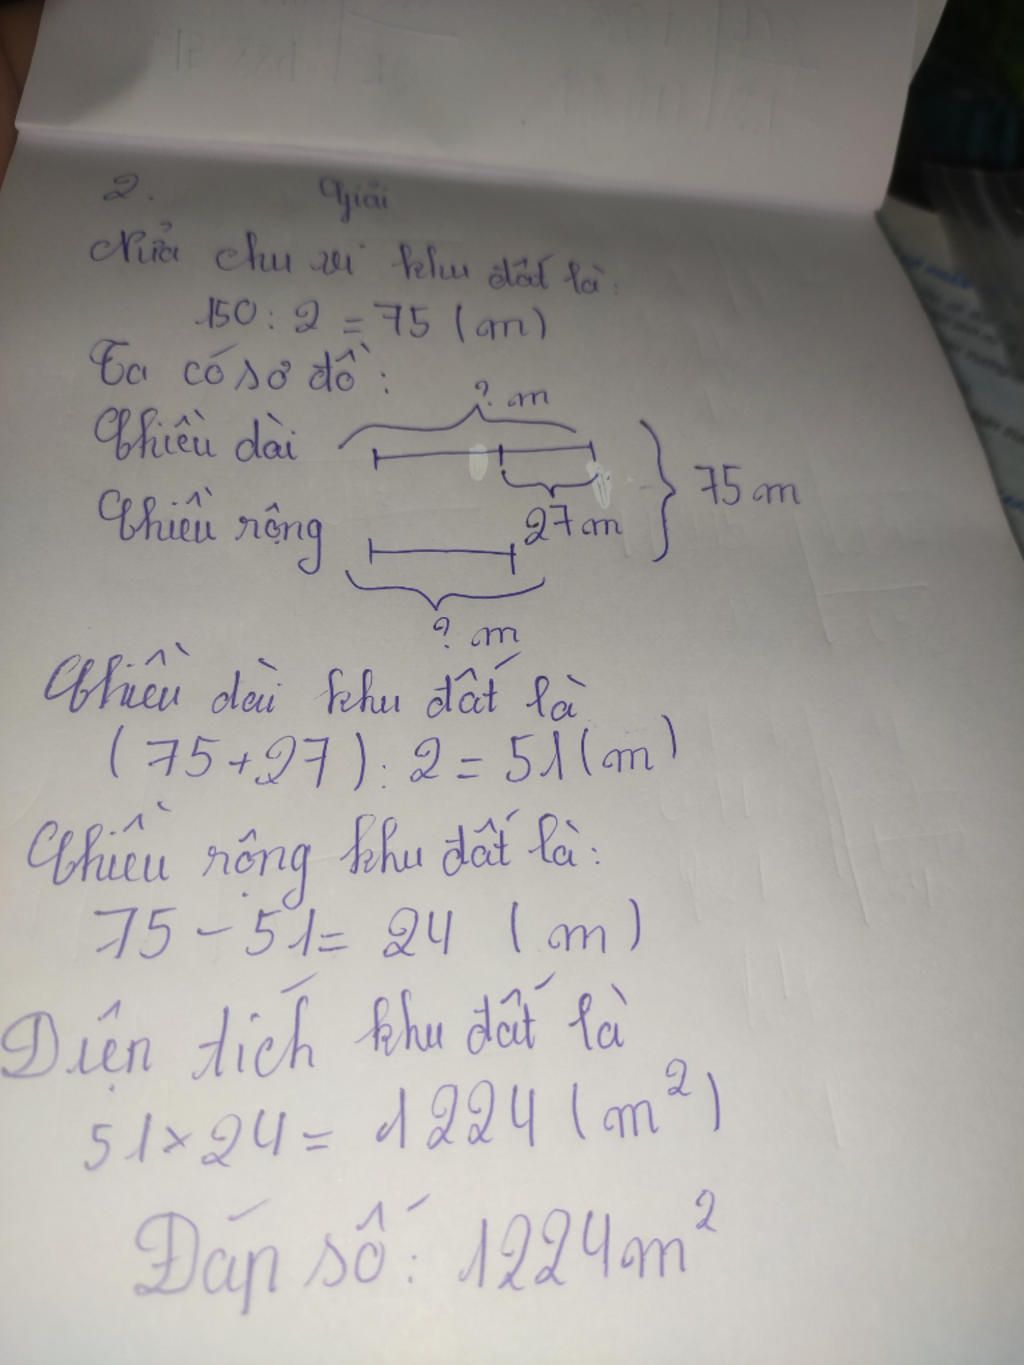 2. Giải
Nửa chu vi khu đất là:
150 : 2 = 75 (m)
Ta có sơ đồ:
? m
Chiều dài
27 m
75 m
Chiều rộng
? m
Chiều dài khu đất là
(75+27) : 2 = 51 (m)
Chiều rộng khu đất là:
75 - 51 = 24 (m)
Diện tích khu đất là
51 × 24 = 1224 (m²)
Đáp số: 1224m²